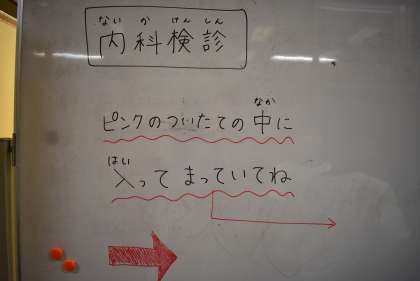 ないかけんしん
内科検診
なか
ピンクのついたての中に
はい
入って まっていてね